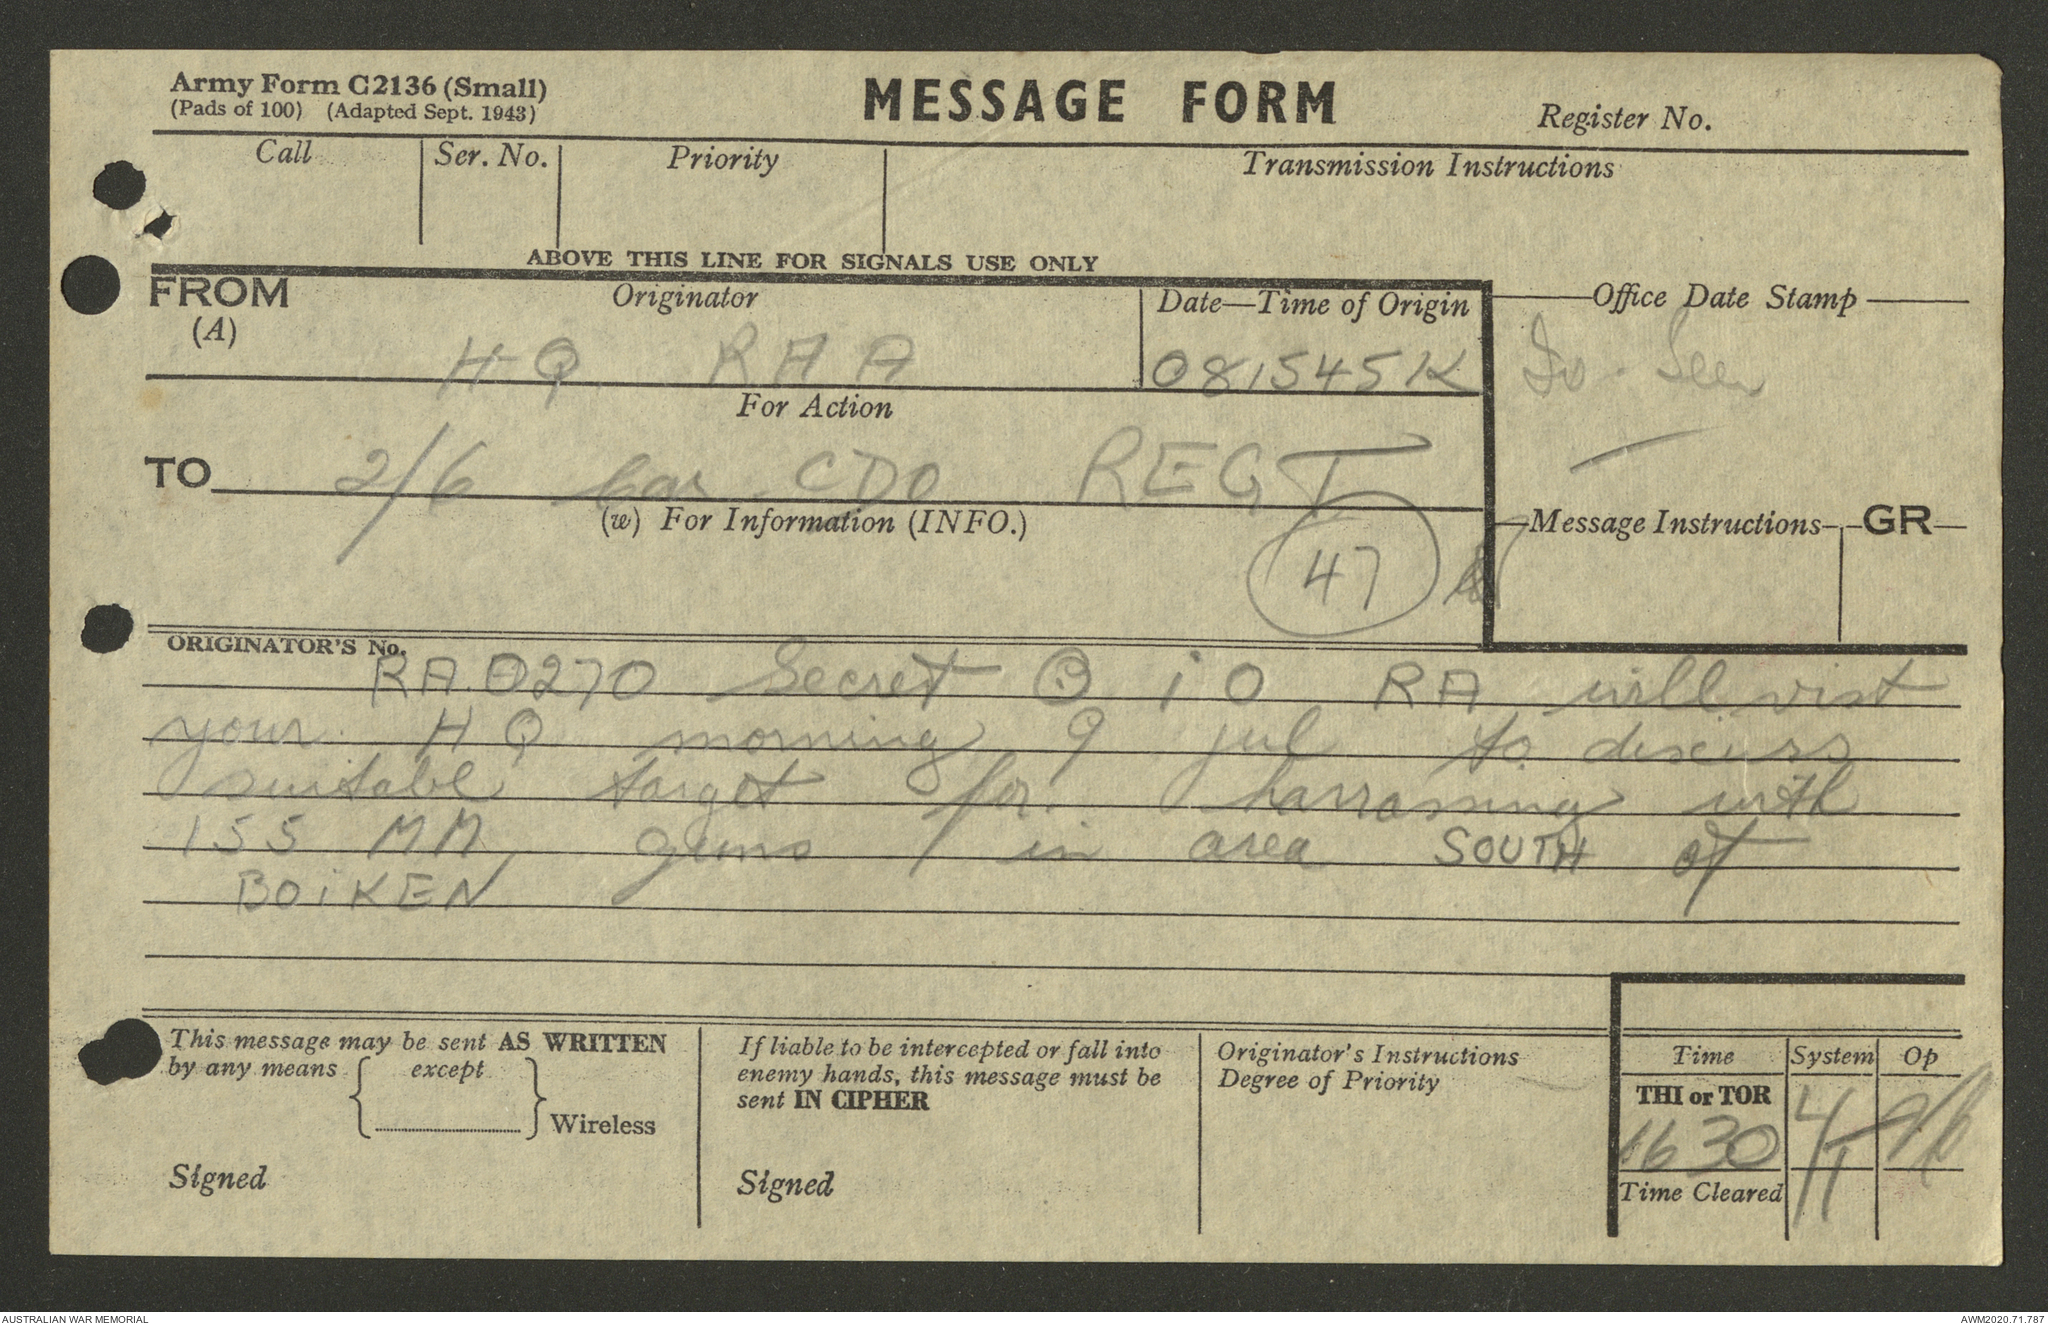 Army Form C2136 (Small)
(Pads of 100) (Adapted Sept. 1943)
MESSAGE FORM
Register No.
Call
Ser. No.
Priority
Transmission Instructions
ABOVE THIS LINE FOR SIGNALS USE ONLY
FROM
(A)
Originator
Date—Time of Origin
Office Date Stamp
HQ RAA
081545K
Seen
For Action
TO
2/6 Cav CDO REGT
(w) For Information (INFO.)
Message Instructions
GR
47
ORIGINATOR'S No.
RA.0270 Secret (.) iO RA will vist
your HQ morning 9 jul to discuss
suitable target for harrassing with
155 MM guns in area SOUTH of
BOiKEN
This message may be sent AS WRITTEN
by any means except
Wireless
Signed
If liable to be intercepted or fall into
enemy hands, this message must be
sent IN CIPHER
Signed
Originator's Instructions
Degree of Priority
Time
System
Op
THI or TOR
1630
4/T
Time Cleared
AUSTRALIAN WAR MEMORIAL
AWM2020.71.787